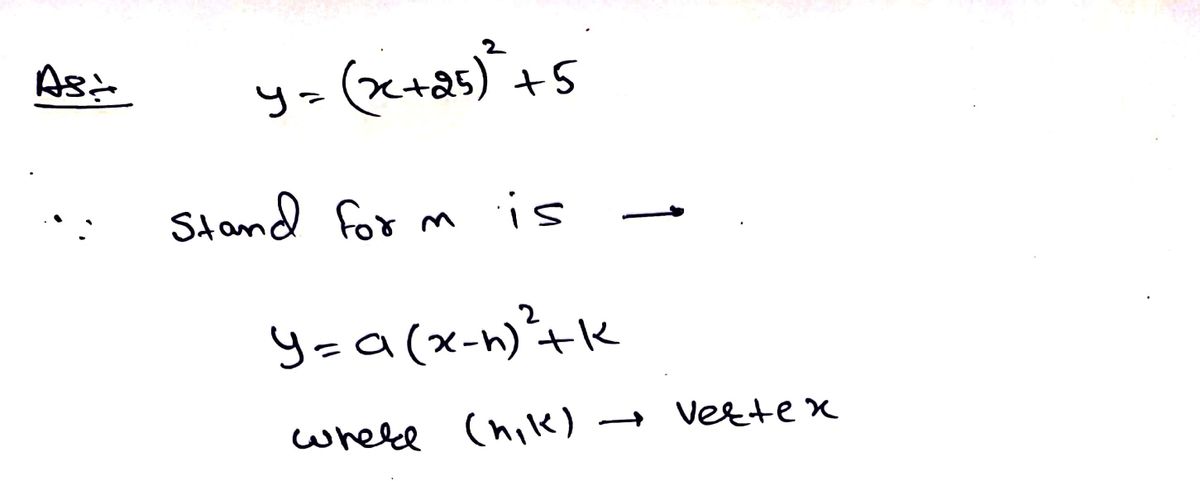 As:- y = (x+25)² + 5
∵ Stand form is →
y = a(x-h)² + k
where (h,k) → vertex